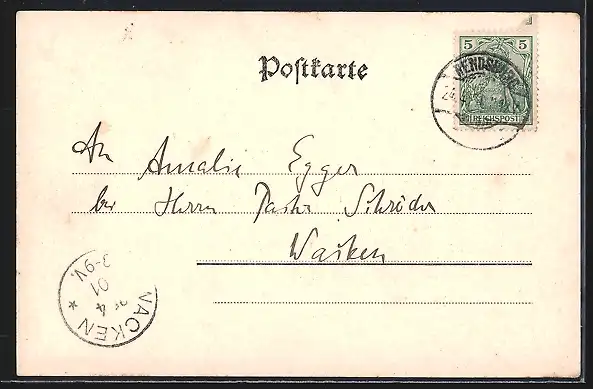 Postkarte
5 5
RENDSBURG
24.4
REICHSPOST
An Amalie Egger
bei Herrn Pastor Schröder
Wacken
WACKEN *
4
01
3-9V.